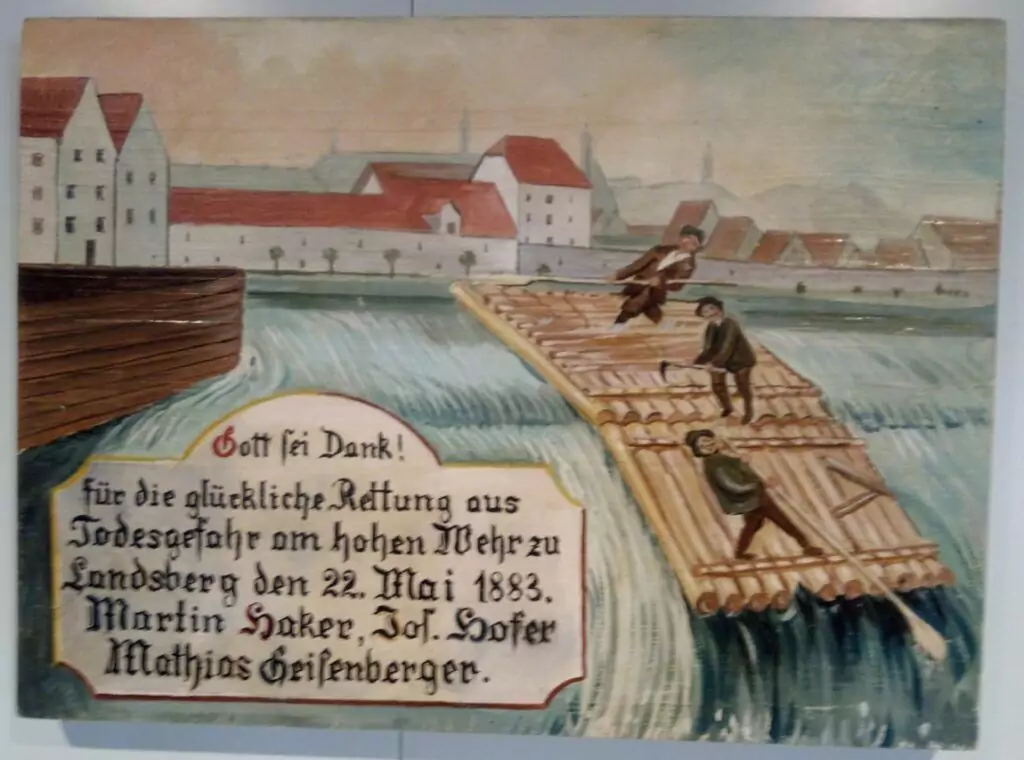 Gott sei Dank!
für die glückliche Rettung aus
Todesgefahr am hohen Wehr zu
Landsberg den 22. Mai 1883.
Martin Haker, Jos. Hofer
Mathias Geisenberger.